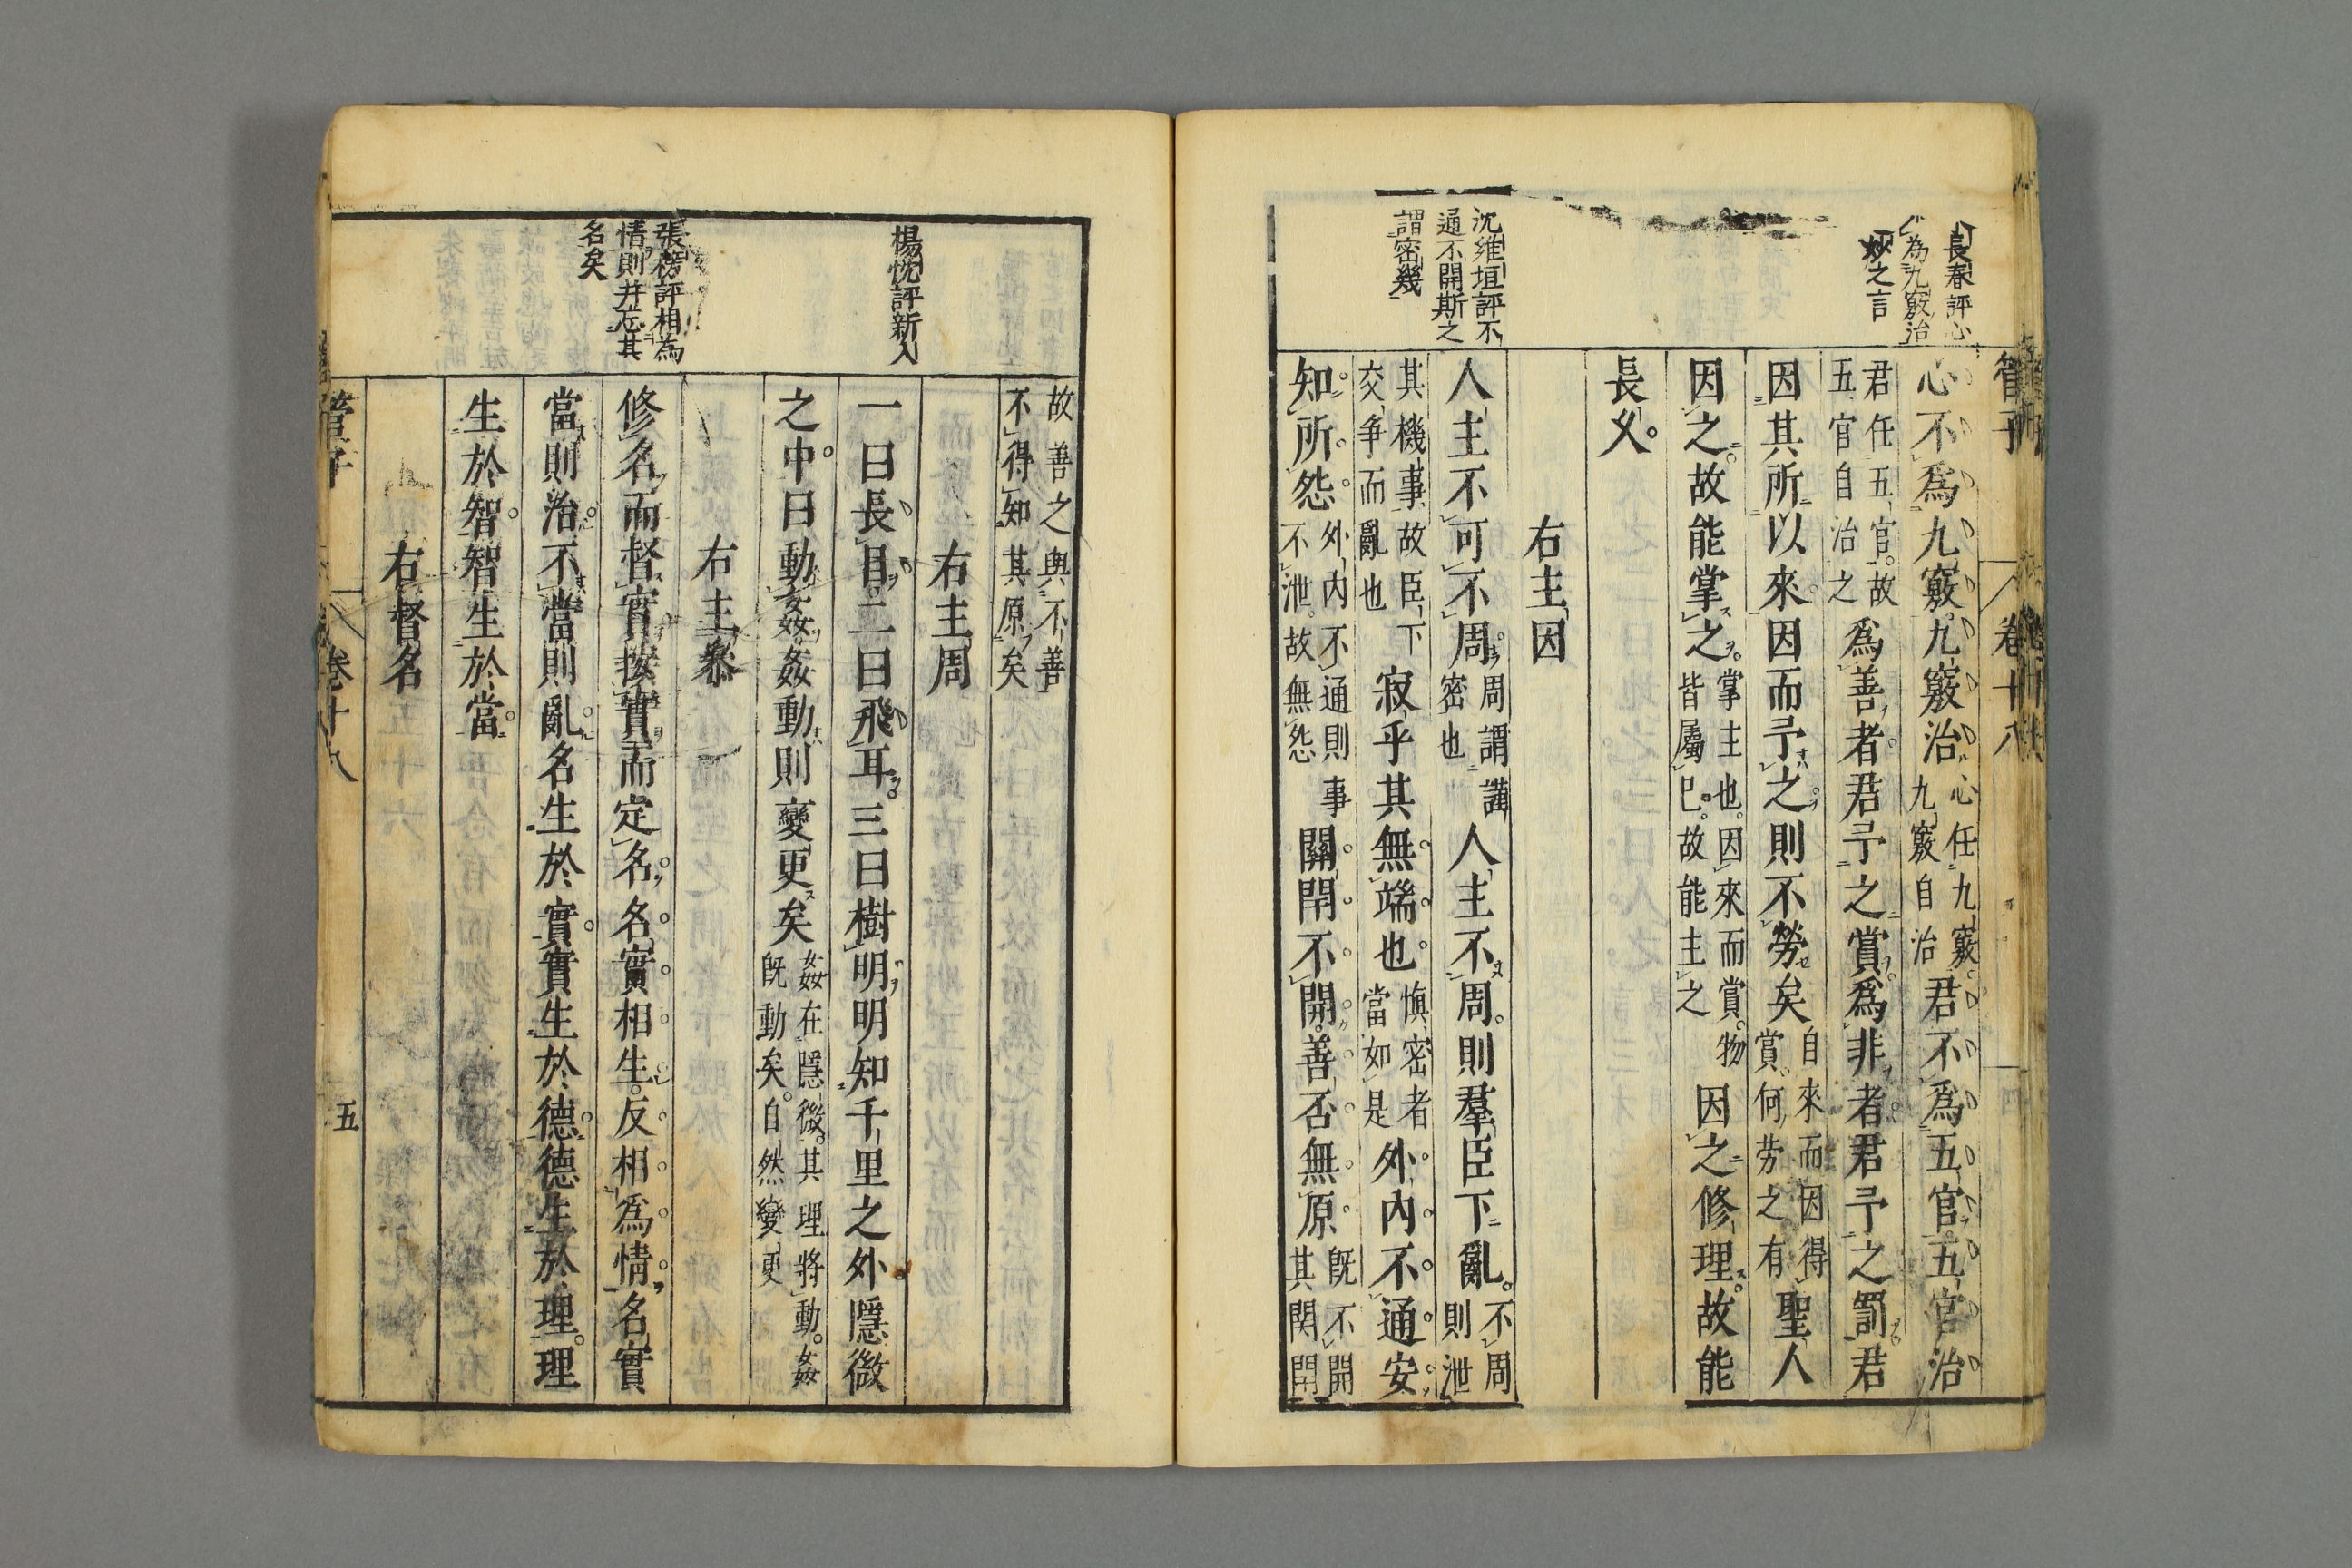 管子
卷十八
長春評心
為九竅治
妙之言
心不爲九竅九竅治心任九竅九竅自治君不爲五官五官治
君任五官故五官自治之爲善者君予之賞爲非者君予之罰君
因其所以來因而予之則不勞矣自來而因得賞何劳之有聖人
因之故能掌之掌主也因來而賞物皆屬已故能主之因之修理故能
長久
右主因
沈維垣評不
通不開斯之
謂密幾
人主不可不周周謂謹密也人主不周則羣臣下亂不周則泄
其機事故臣下交争而亂也寂乎其無端也愼密者當如是外内不通安
知所怨外内不通則事不泄故無怨關閈不開善否無原旣不開其関閈
故善之與不善不得知其原矣
右主周
楊忱評新入
一曰長目二曰飛耳三曰樹明明知千里之外隱微
之中曰動姦姦動則變更矣姦在隱微其理將動姦旣動矣自然變更
右主叅
張榜評相為
情則并忘其
名矣
修名而督實按實而定名名實相生反相爲情名實
當則治不當則亂名生於實實生於德德生於理理
生於智智生於當
右督名
管子
卷十八
五